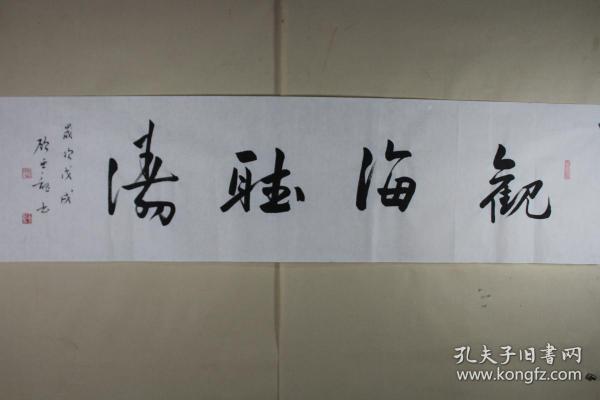 觀海聽濤
歲次戊戌
孔夫子旧书网
www.kongfz.com